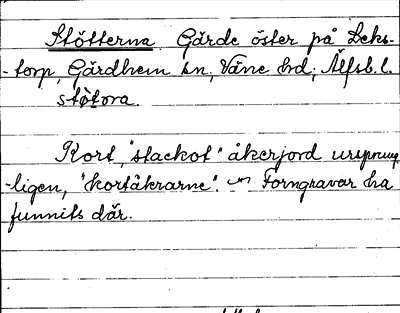 Stötterna. Gärde öster på Leks-
-torp, Gärdhem sn, Väne hd, Älfsb. l.
stötora.
Kort, "stackot" åkerjord ursprung
-ligen, "kortåkrarne". Forngravar ha
funnits där.